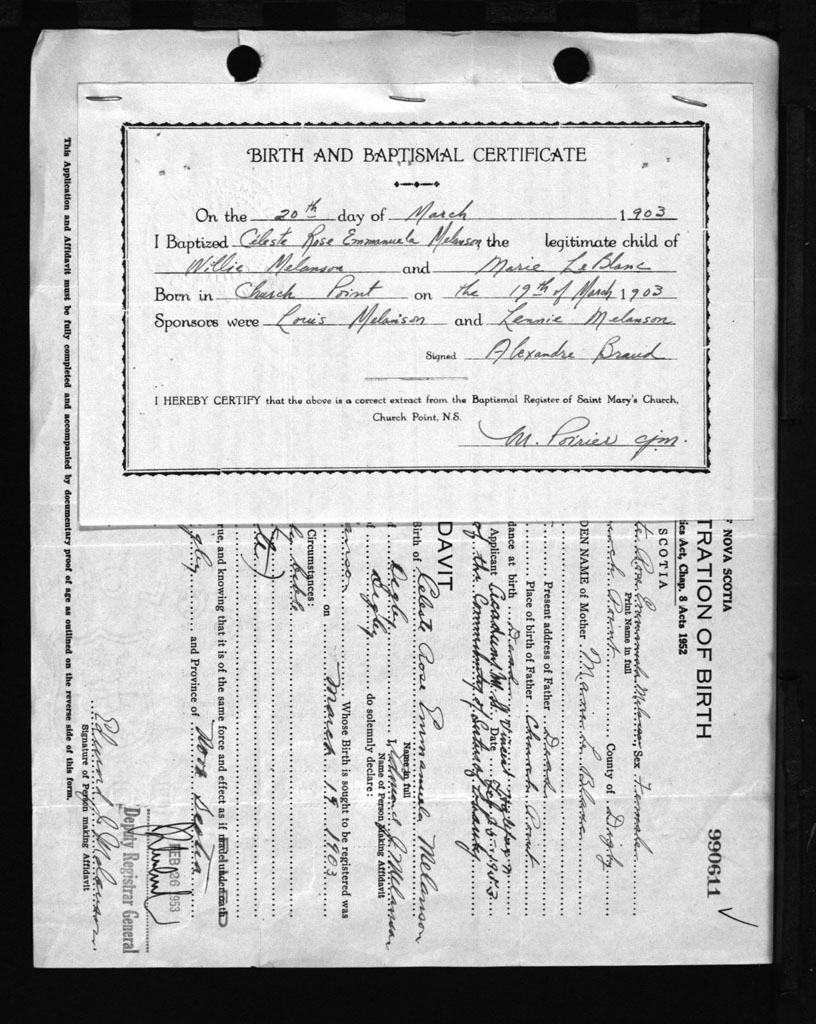 BIRTH AND BAPTISMAL CERTIFICATE
On the 20th day of March 1903
I Baptized Celeste Rose Emmanuela Melanson the legitimate child of
Willie Melanson and Marie LeBlanc
Born in Church Point on the 19th of March 1903
Sponsors were Louis Melanson and Lennie Melanson
Signed Alexandre Braud
I HEREBY CERTIFY that the above is a correct extract from the Baptismal Register of Saint Mary's Church,
Church Point, N.S.
M. Poirier cjm.
990611
NOVA SCOTIA
TRATION OF BIRTH
ies Act, Chap. 8 Acts 1952
SCOTIA
Rose Emmanuela Melanson, Sex Female
Print Name in full
Point County of Digby
DEN NAME of Mother Marie LeBlanc
Present address of Father Dead
Place of birth of Father Church Point
dance at birth Dead
Applicant Date Feb 25, 1953
of the Community of
DAVIT
Birth of Celeste Rose Emmanuela Melanson
Name in full
of Digby I, Edmund J Melanson
Name of Person Making Affidavit
of Digby do solemnly declare:
anson Whose Birth is sought to be registered was
on March 19 1903
Circumstances:
by bible
rue, and knowing that it is of the same force and effect as if made under oath
and Province of Nova Scotia
FEB 26 1953
Deputy Registrar General
Edmund J Melanson
Signature of Person making Affidavit
This Application and Affidavit must be fully completed and accompanied by documentary proof of age as outlined on the reverse side of this form.